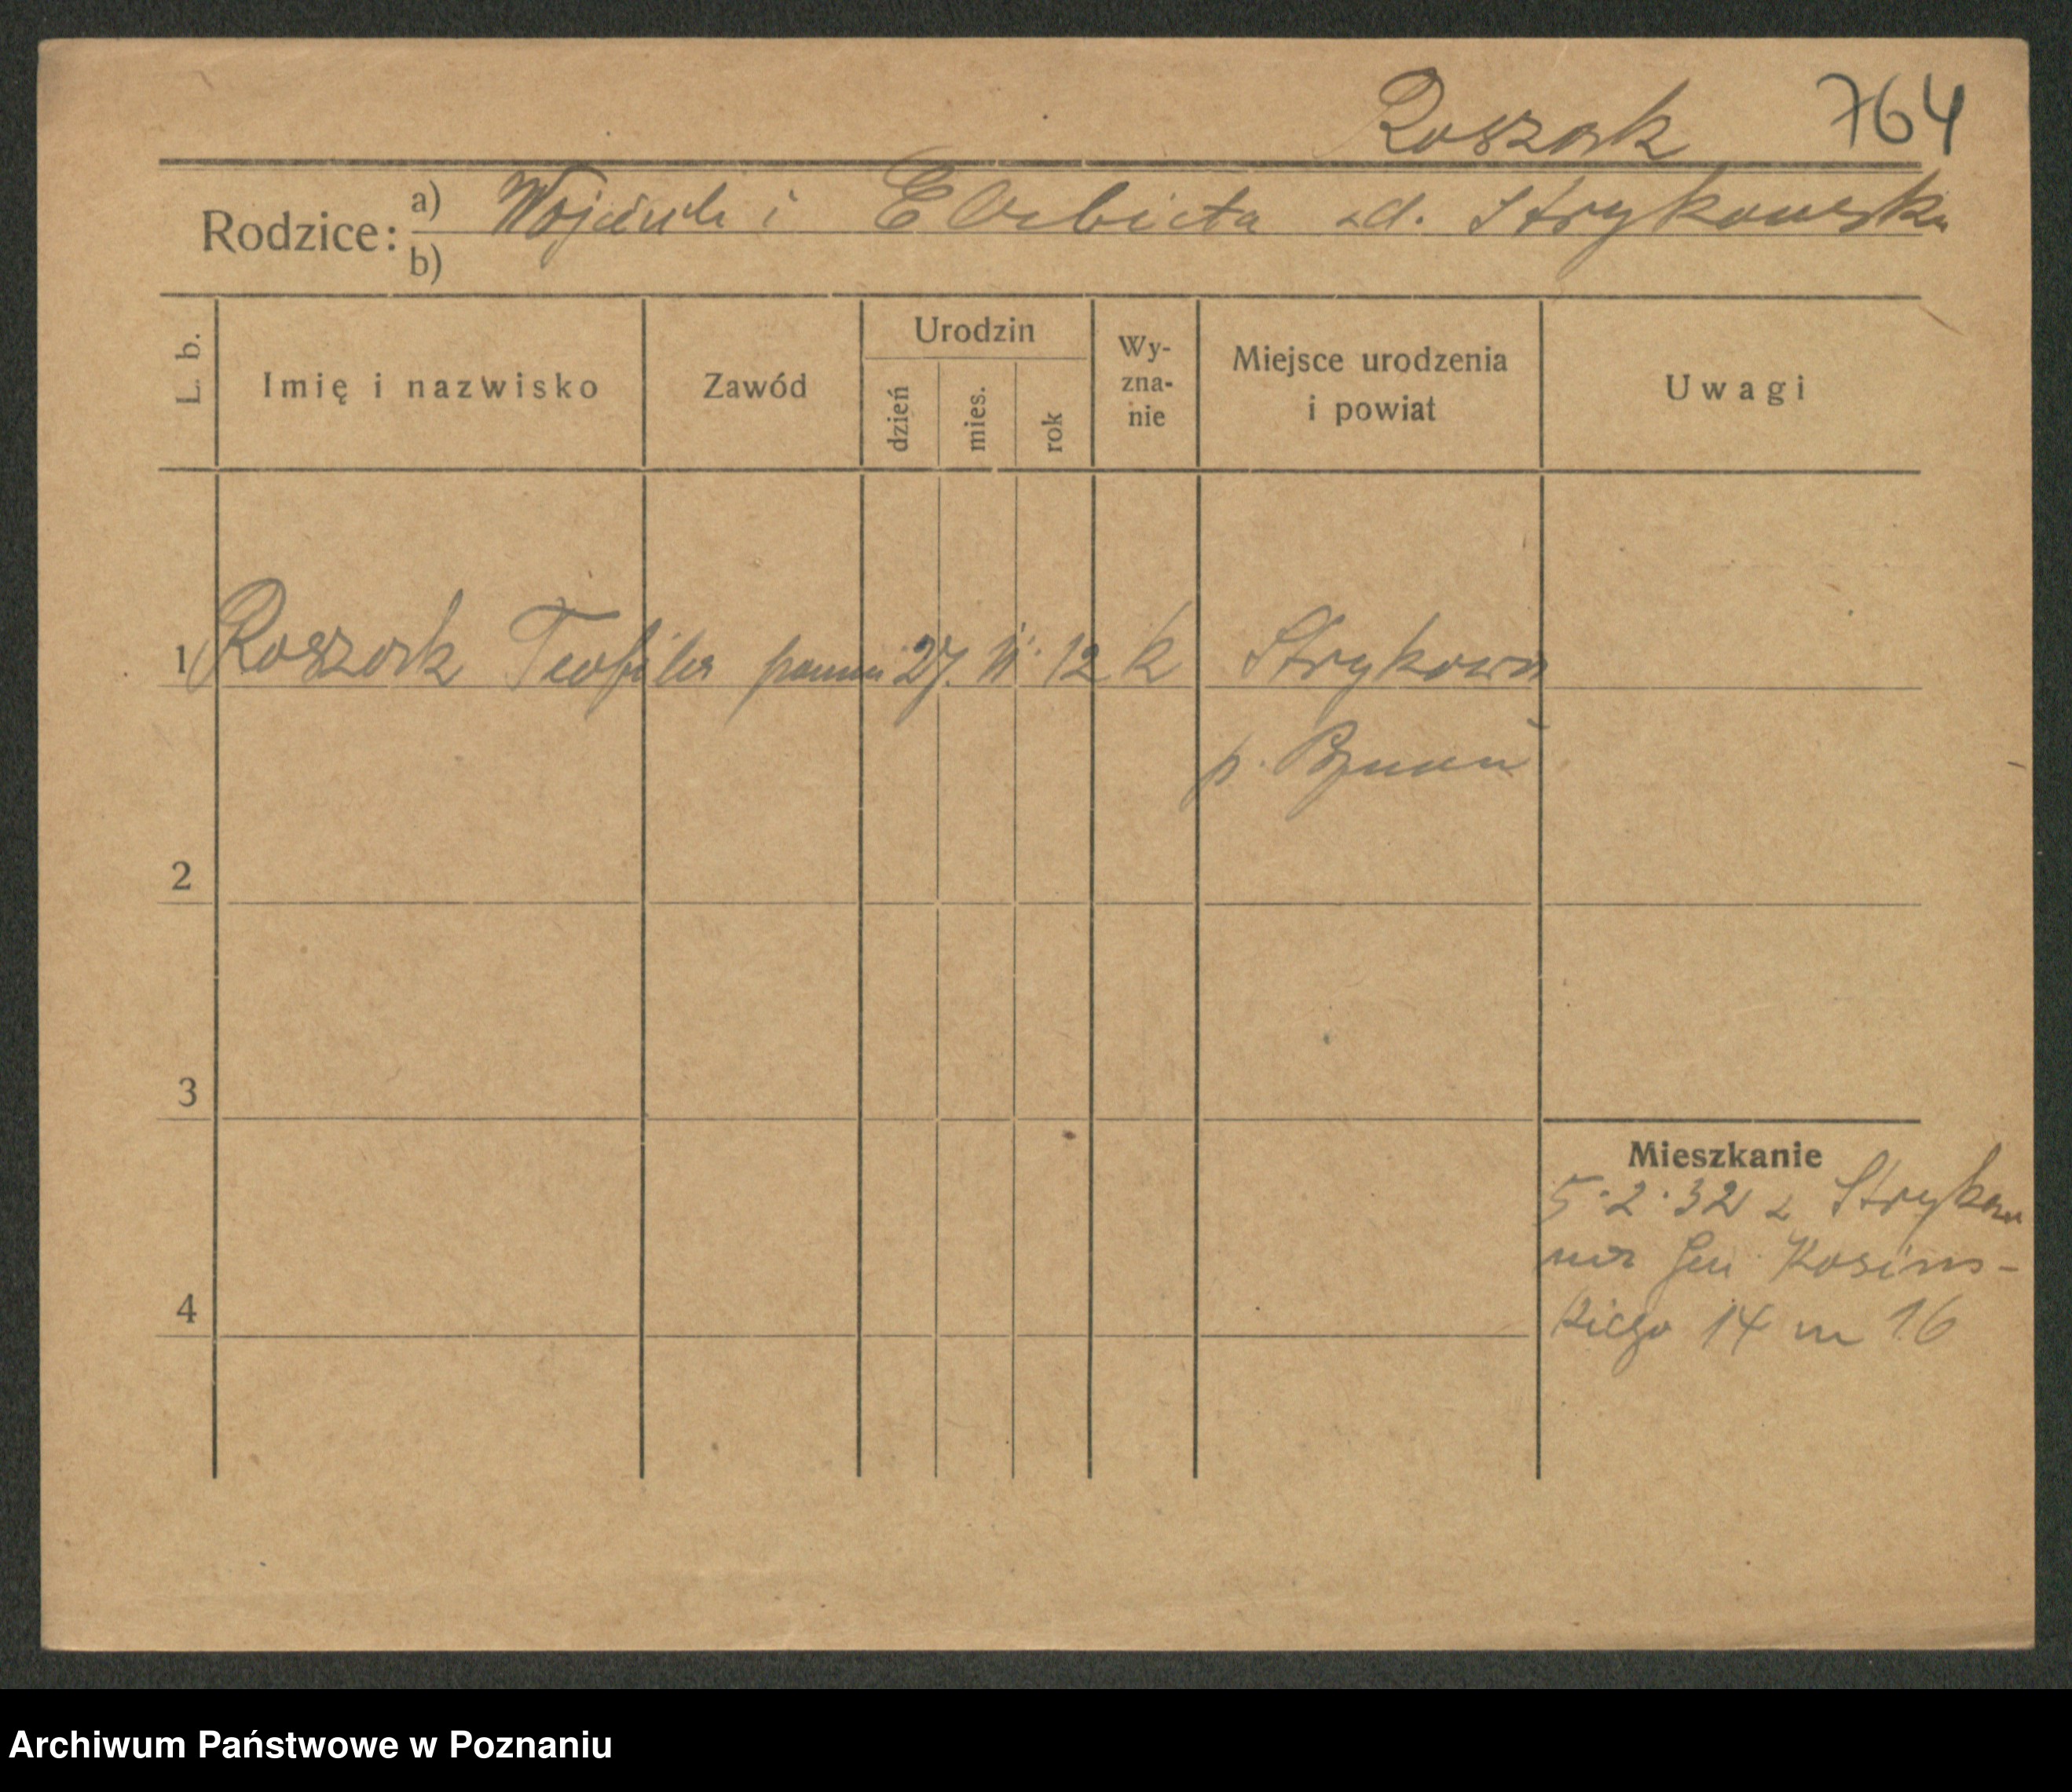 Roszak 764
Rodzice: a) Wojciech i Elżbieta zd. Strykowska
b)
L. b. Imię i nazwisko Zawód Urodzin dzień mies. rok Wy-zna-nie Miejsce urodzenia i powiat Uwagi
1 Roszak Teofila panna 27. 12 k Strykowo
p. Poznań
2
3
Mieszkanie
5.2.32 z Strykowa
Gen Kosińs-
4
kiego 14 m 16
Archiwum Państwowe w Poznaniu